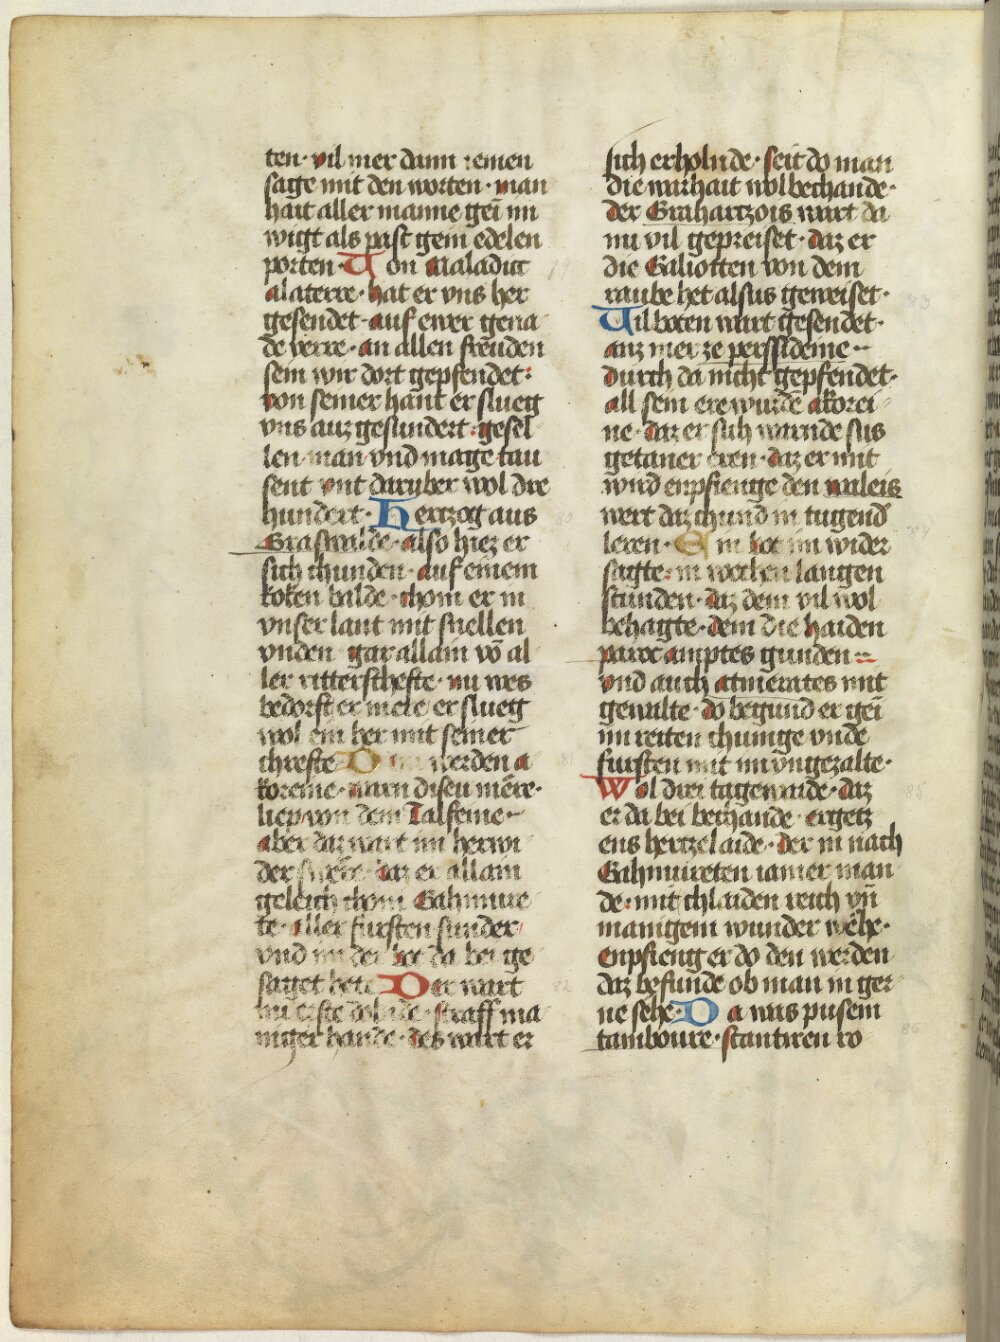 ten · vil mer dann einen
sage mit den worten · man
hait aller manne geī im
wigt als past gein edelen
porten · Von Maladicc
alaterre · hat er vns her
gesendet · auf ewer gena
de verre · an allen freuden
sein wir dort gepfendet :
von seiner hant er slueg
vns auz gesundert · gesel
len man vnd mage tau
sent vnt daruber wol dre
hundert · Hertzog aus
Graswalde · also hiez er
sich chunden · auf einem
koken balde · chom er in
vnser lant mit snellen
vnden gar allain vō al
ler ritterschefte · nu wes
bedorft er mere er slueg
wol ein her mit seiner
chrefte D werden a
koreine · warn diseu mēre ·
liep von dem Talfeine ·
aber daz wart im herwi
der swere · daz er allain
geleich chom Gahmure
te · aller fursten sunder
vnd im der bot da bei ge
saget hete Der wart
im erste dolnde · straff ma
niger hande · des wart er
sich erholnde · seit do man
die warhait wol bechande ·
der Grahartzois wart da
nu vil gepreiset · daz er
die Galiotten von dem
raube het alsus geweiset ·
Vil boten wart gesendet ·
anz mer ze perssideine ·
durch da nicht gepfendet ·
all sein ere wurde akorei
ne · daz er sich warnde sus
getaner eren · daz er mit
wird enpfienge den waleis
wert daz chund in tugend
leren · Sin bot im wider
sagte · in wochen langen
stunden · daz dem vil wol
behagte · dem die haiden
paroc amptes gunden
vnd auch atmerates mit
gewalte · do begund er geī
im reiten chunige vnde
fursten mit im vngezalte ·
Wol drei tagewaide · daz
er da bei bechande · ergetz
ens hertzelaide · der in nach
Gahmureten iamer man
de · mit chlaiden reich vn̄
manigem wunder wēhe ·
enpfieng er do den werden
daz befunde ob man in ger
ne sehe · Da was pusein
tamboure · scantiren ro